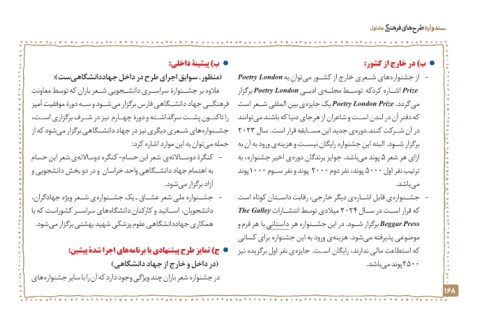 سندواره طرح‌های فرهنگی جلد اول
ب) در خارج از کشور:
- از جشنواره‌های شعری خارج از کشور می‌توان به Poetry London
Prize اشاره کرد که توسط مجله‌ی ادبی Poetry London برگزار
می‌گردد. Poetry London Prize یک جایزه‌ی بین المللی شعر است
که دفتر آن در لندن است و شاعران از هر جای دنیا که باشند می‌توانند
در آن شرکت کنند. دوره‌ی جدید این مسابقه قرار است. سال ۲۰۲۳
برگزار شود. البته این جشنواره رایگان نیست و هزینه‌ی ورود به آن به
ازای هر شعر ۵ پوند می‌باشد. جوایز برندگان دوره‌ی اخیر جشنواره، به
ترتیب نفر اول ۵۰۰۰ پوند، نفر دوم ۲۰۰۰ پوند و نفر سوم ۱۰۰۰ پوند
می‌باشد.
- جشنواره‌ی قابل اشاره‌ی دیگر خارجی، رقابت داستان کوتاه است
که قرار است در سال ۲۰۲۴ میلادی توسط انتشارات The Galley
Beggar Press برگزار شود. در این جشنواره هر داستانی با هر فرم و
موضوعی پذیرفته می‌شود. هزینه‌ی ورود به این جشنواره برای کسانی
که استطاعت مالی ندارند، رایگان است. جایزه‌ی نفر اول برگزیده نیز
۲۵۰۰ پوند می‌باشد.
ب) پیشینهٔ داخلی:
(منظور، سوابق اجرای طرح در داخل جهاددانشگاهی‌ست):
علاوه بر جشنوارهٔ سراسری دانشجویی شعر باران که توسط معاونت
فرهنگی جهاد دانشگاهی فارس برگزار می‌شود و سه دورهٔ موفقیت آمیز
را تاکنون پشت سر گذاشته و دورهٔ چهارم نیز در شرف برگزاری است،
جشنواره‌های شعری دیگری نیز در جهاد دانشگاهی برگزار می‌شود که از
جمله می‌توان به این موارد اشاره کرد:
- کنگرهٔ دوسالانه‌ی شعر ابن حسام- کنگره دوسالانه‌ی شعر ابن حسام
به اهتمام جهاد دانشگاهی واحد خراسان و در دو بخش دانشجویی و
آزاد برگزار می‌شود.
- جشنواره ملی شعر عشاق ـ یک جشنواره‌ی شعر ویژه جهادگران،
دانشجویان، اساتید و کارکنان دانشگاه‌های سراسر کشور است که با
همکاری جهاددانشگاهی علوم پزشکی شهید بهشتی برگزار می‌شود.
ج) تمایز طرح پیشنهادی با برنامه‌های اجرا شدهٔ پیشین:
(در داخل و خارج از جهاد دانشگاهی)
در جشنواره شعر باران چند ویژگی وجود دارد که آن را با سایر جشنواره‌های
۱۶۸